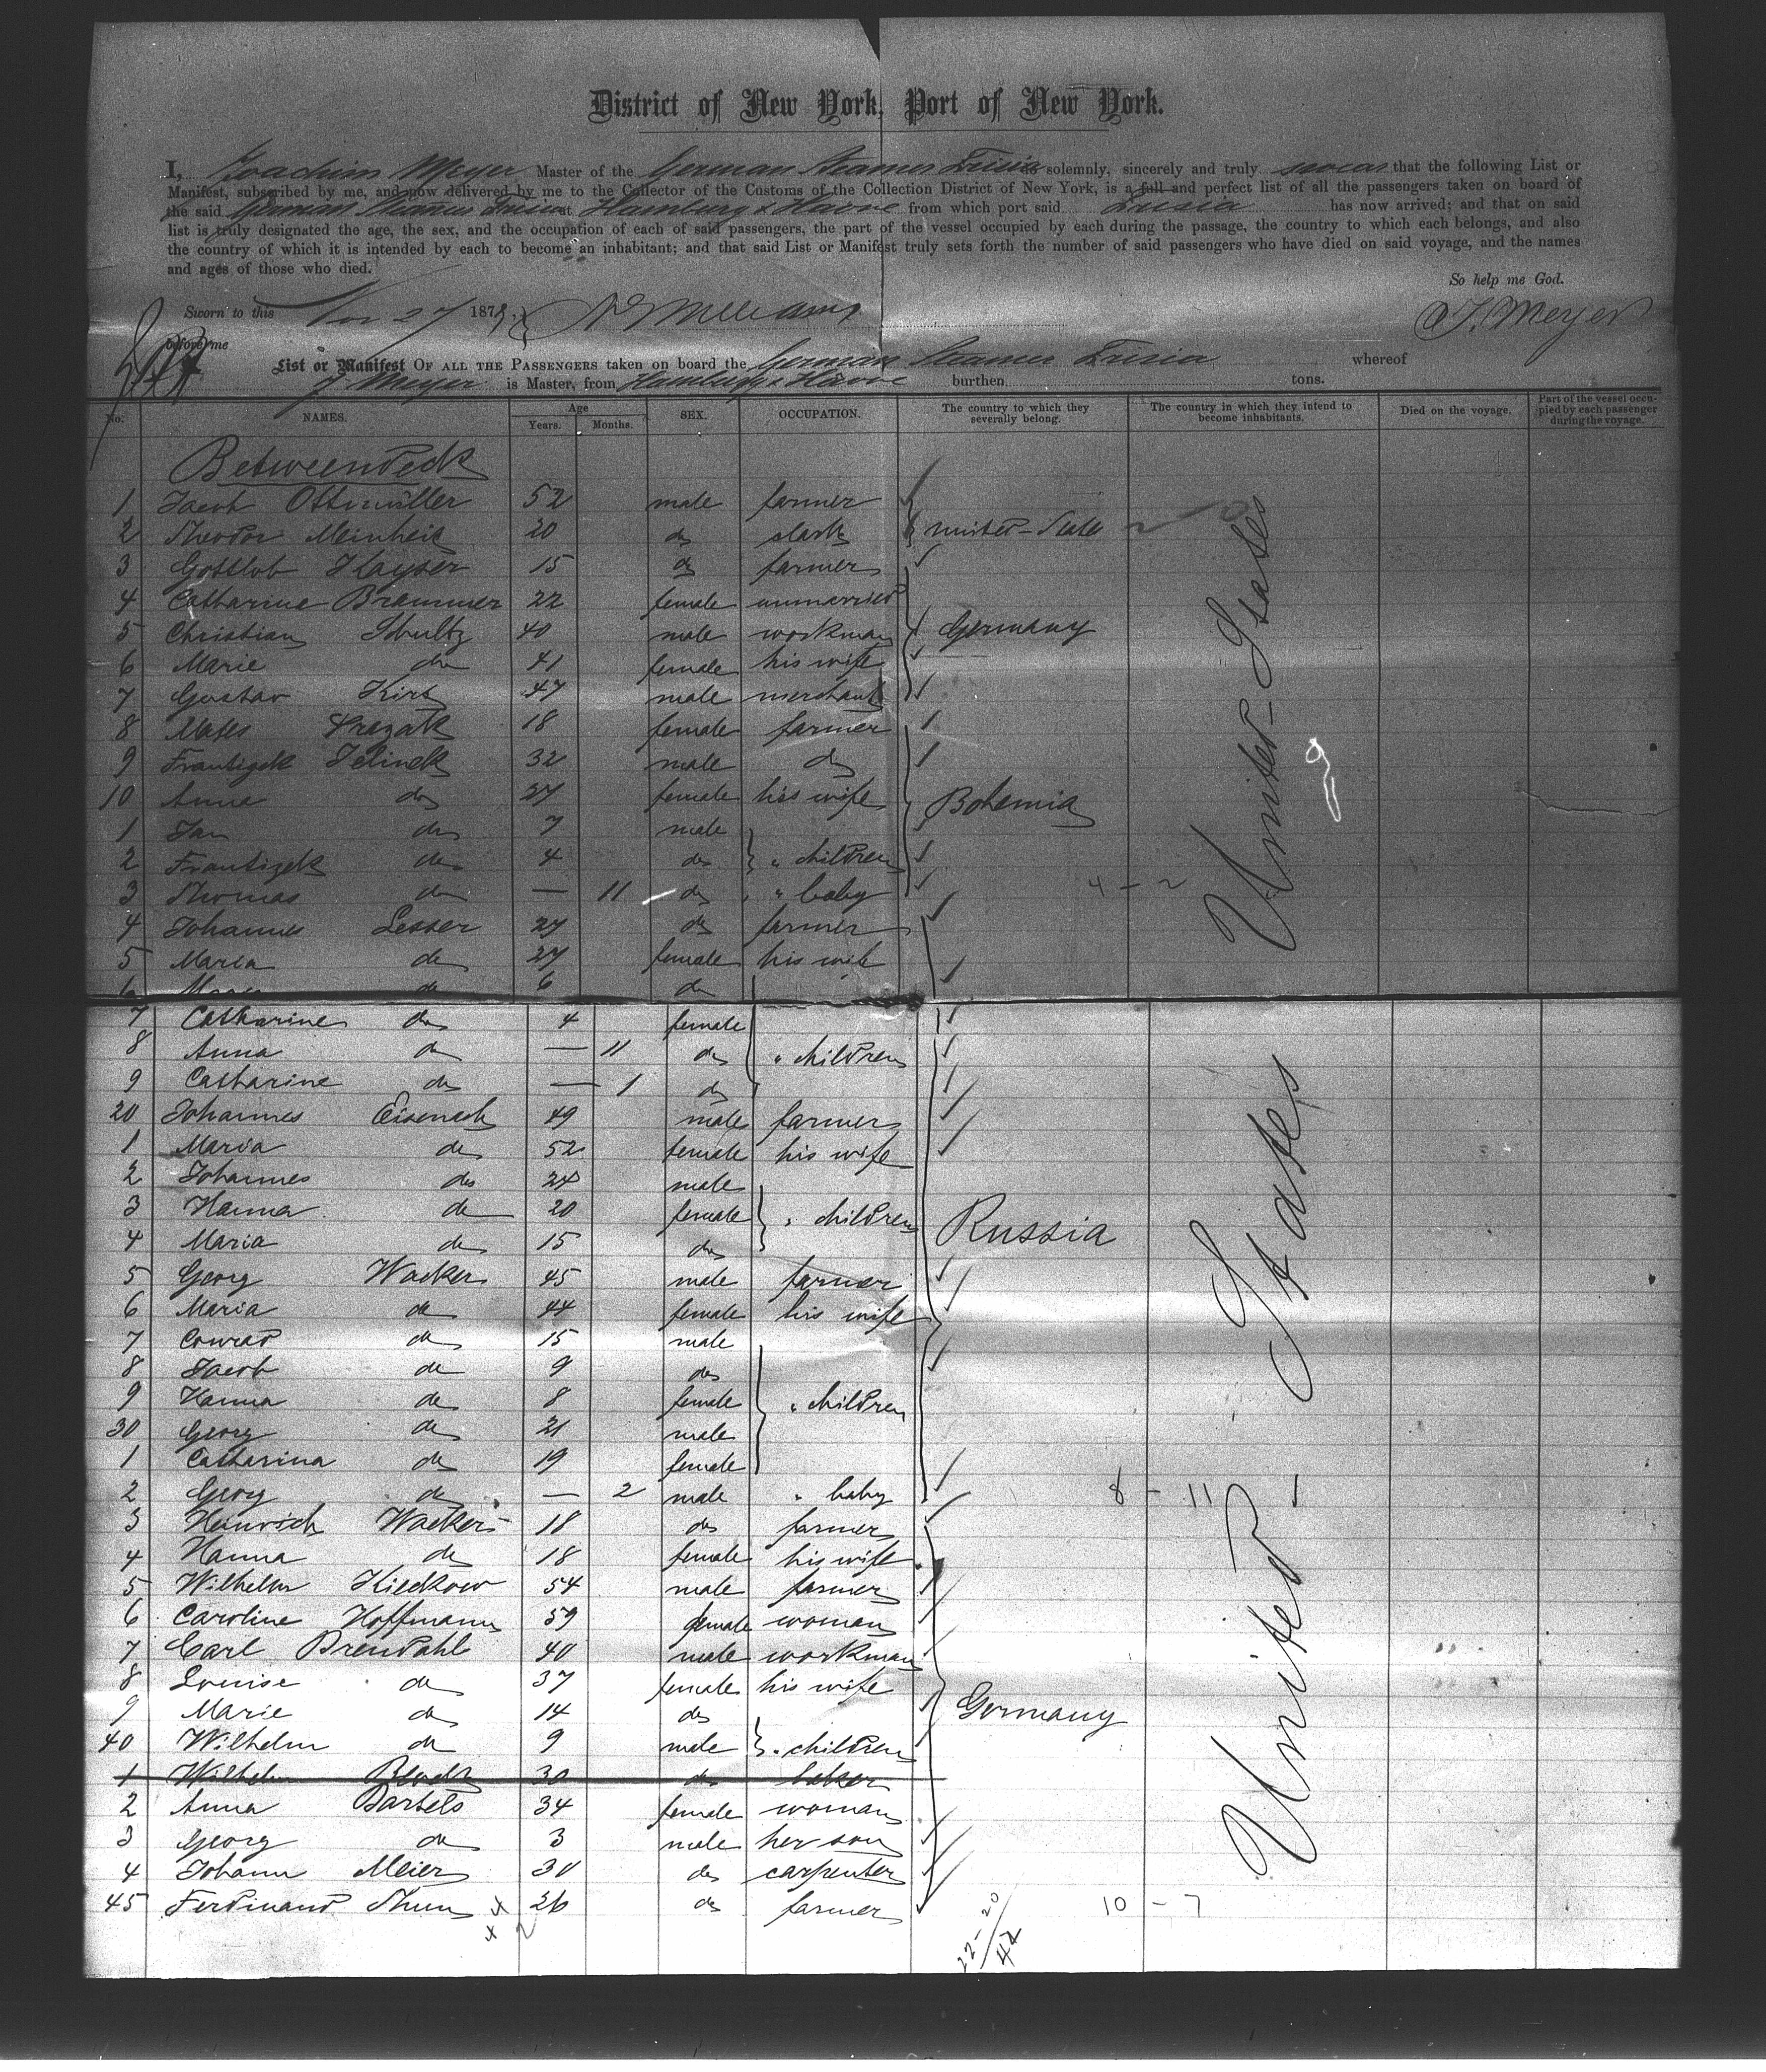 District of New York, Port of New York.
I, Joachim Meyer Master of the German Steamer Frisia solemnly, sincerely and truly swear that the following List or
Manifest, subscribed by me, and now delivered by me to the Collector of the Customs of the Collection District of New York, is a full and perfect list of all the passengers taken on board of
the said German Steamer Frisia at Hamburg & Havre from which port said Frisia has now arrived; and that on said
list is truly designated the age, the sex, and the occupation of each of said passengers, the part of the vessel occupied by each during the passage, the country to which each belongs, and also
the country of which it is intended by each to become an inhabitant; and that said List or Manifest truly sets forth the number of said passengers who have died on said voyage, and the names
and ages of those who died.
So help me God.
Sworn to this Nov 27 1878
J. Meyer
before me
List or Manifest OF ALL THE PASSENGERS taken on board the German Steamer Frisia whereof
J. Meyer is Master, from Hamburg & Havre burthen tons.
No. NAMES. Age Years. Months. SEX. OCCUPATION. The country to which they severally belong. The country in which they intend to become inhabitants. Died on the voyage. Part of the vessel occupied by each passenger during the voyage.
Betweendeck
1 Jacob Ottmüller 52 male farmer
2 Theodor Meinheit 20 do clark United-State
3 Gottlob Kayser 15 do farmer
4 Catharine Brammer 22 female unmarried
5 Christian Schultz 40 male workman Germany
6 Marie do 41 female his wife
7 Gustav Kirs 47 male merchant
8 Mates Prazak 18 female farmer
9 Frantizek Jelinek 32 male do
10 Anna do 27 female his wife Bohemia
1 Jan do 7 male
2 Frantizek do 4 do " children
3 Thomas do — 11 do " baby 4 - 2
4 Johannes Lesser 27 do farmer
5 Maria do 27 female his wife
6 do 6 do
7 Catharine do 4 female
8 Anna do — 11 do " children
9 Catharine do — 1 do
20 Johannes Eisenach 49 male farmer
1 Maria do 52 female his wife
2 Johannes do 24 male
3 Hanna do 20 female " children Russia
4 Maria do 15 do
5 Georg Wacker 45 male farmer
6 Maria do 44 female his wife
7 Conrad do 15 male
8 Jacob do 9 do
9 Hanna do 8 female " children
30 Georg do 21 male
1 Catharina do 19 female
2 Georg do — 2 male " baby 8 - 11
3 Heinrich Wacker 18 do farmer
4 Hanna do 18 female his wife
5 Wilhelm Kieckow 54 male farmer
6 Caroline Hoffmann 59 female woman
7 Carl Brendahl 40 male workman
8 Louise do 37 female his wife
9 Marie do 14 do Germany
40 Wilhelm do 9 male " children
1 Wilhelm 30 do baker
2 Anna Bartels 34 female woman
3 Georg do 3 male her son
4 Johann Meier 30 do carpenter
45 Ferdinand Thun 26 do farmer 10 - 7
22-20
42
United-States
United - States